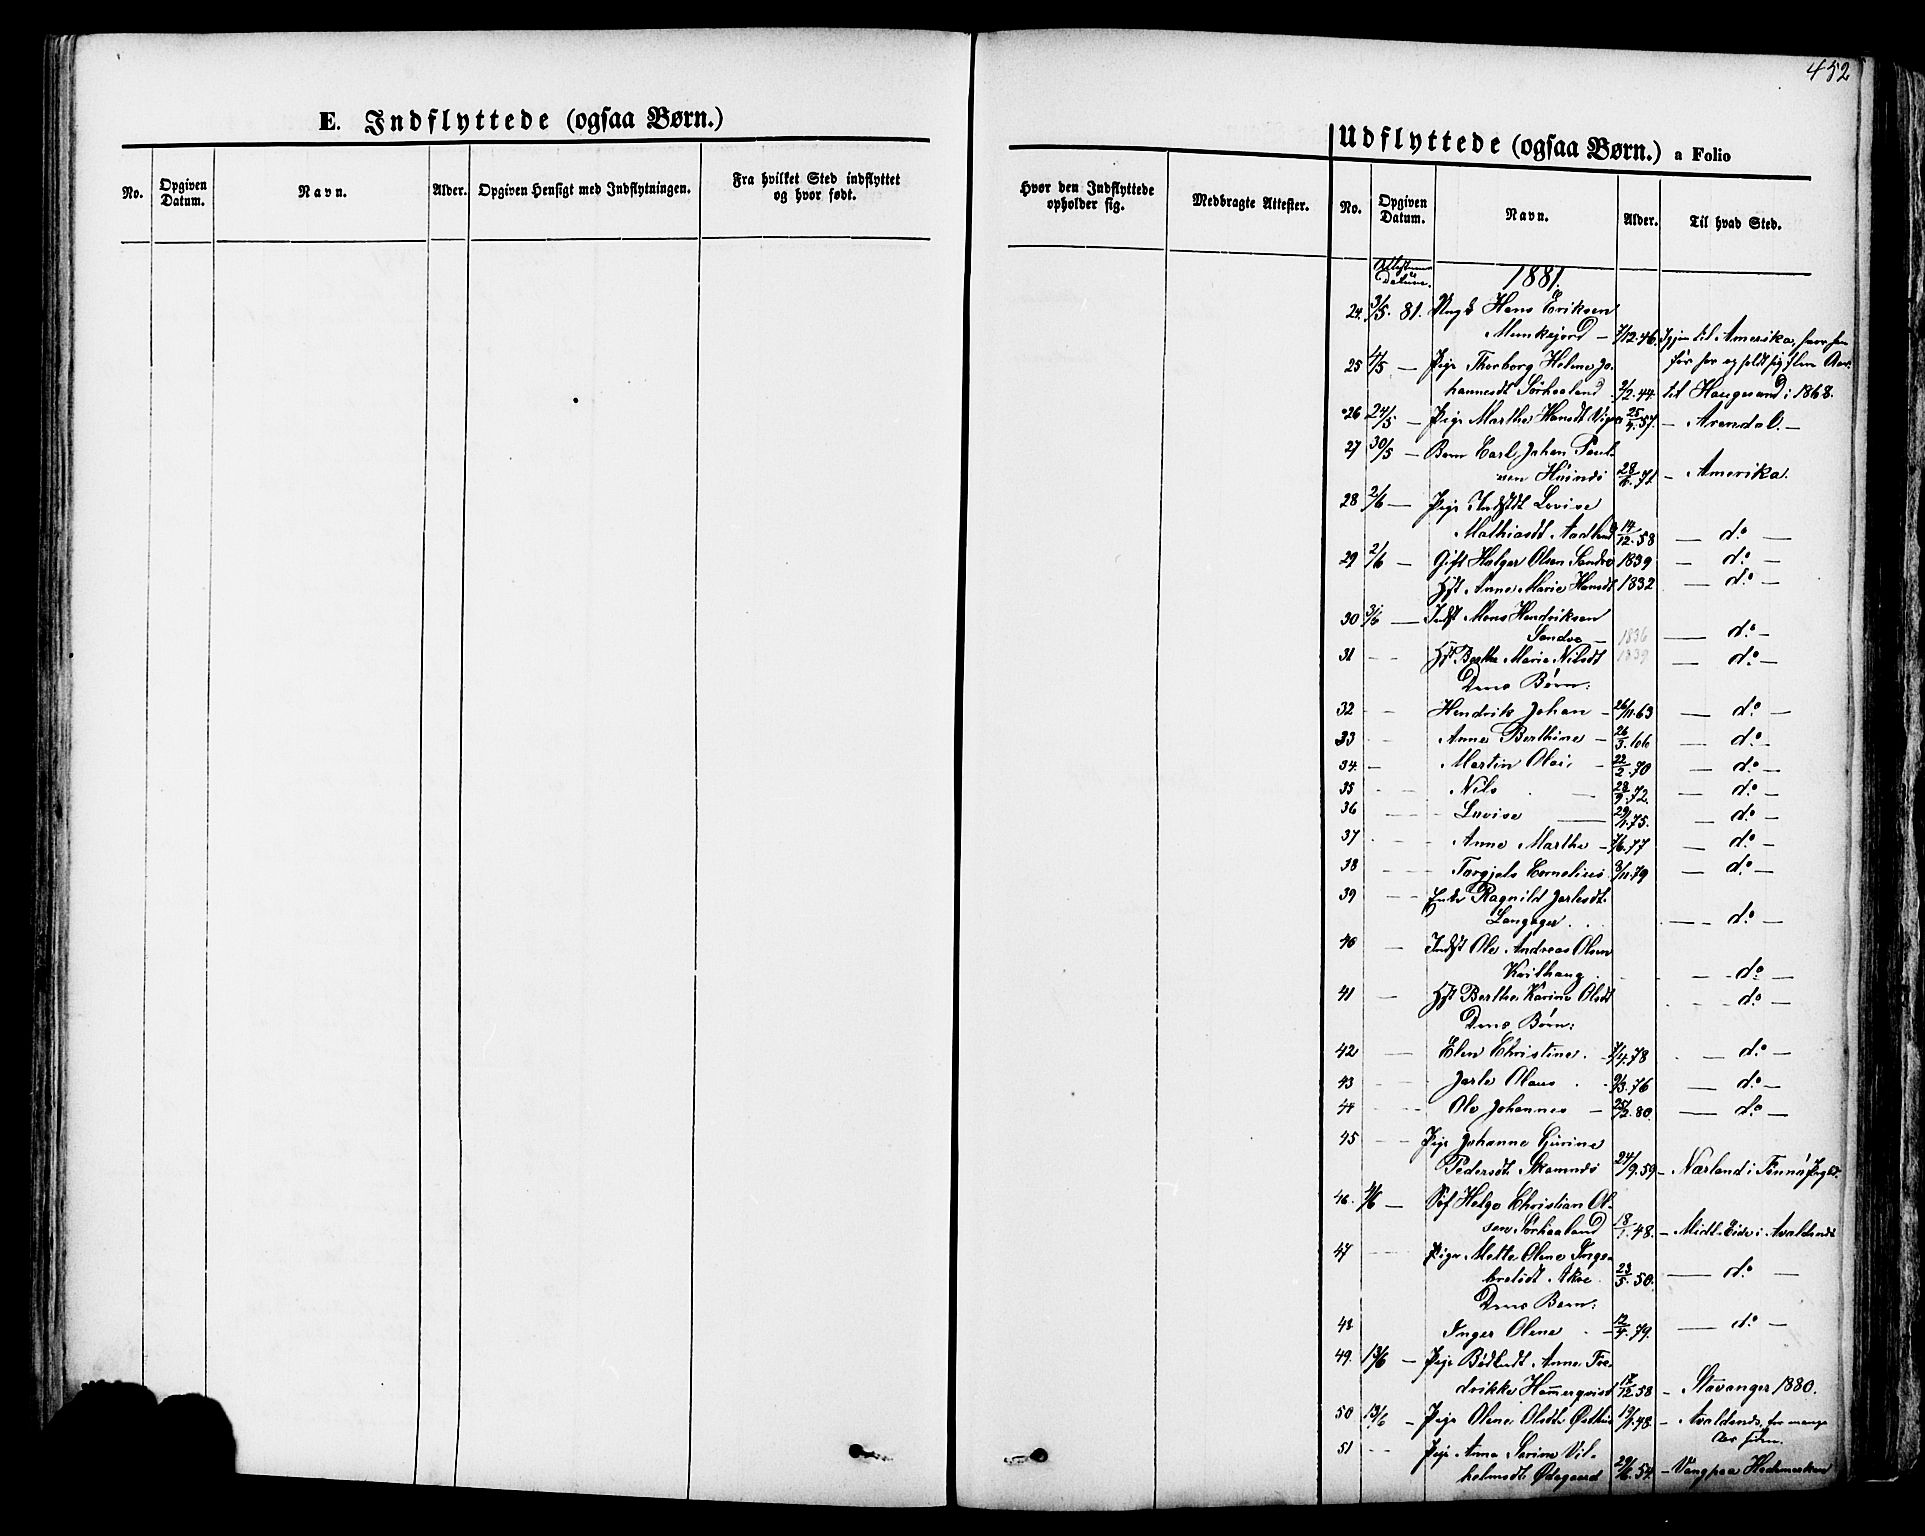 452
E. Indflyttede (ogsaa Børn.)
No.
Opgiven Datum.
Navn.
Alder.
Opgiven Hensigt med Indflytningen.
Fra hvilket Sted indflyttet
og hvor født.
Hvor den Indflyttede
opholder sig.
Medbragte Attester.
Udflyttede (ogsaa Børn.) a Folio
No.
Opgiven Datum.
Navn.
Alder.
Til hvad Sted.
Datum. 1881.
24. 3/5. 81. Ungk Hans Eriksen
Munkejord — 7/12.46. Igjen til Amerika, hvor han
25 4/5 — Pige Thorborg Helene Jo-
før har og holdt sig flere Aar.
hannesdt Sørhaaland 9/2.44. til Haugesund i 1868.
26 24/5 — Pige Marthe Hansdt 25/4.57. — Arendal. —
27 30/5 — Barn Carl Johan Paul-
sen 28/ .72 — Amerika.
28 2/6 — Pige Lovise
Mathiasdt 14/12.58 — do —
29 2/6 — Gift Holger Olsen Sandve 1839 — do —
Hst Anne Marie Hansdt 1832 — do —
30 3/6 — Indst Mons Hendriksen
Sandve — 1836 — do —
31 - - Hst Berthe Marie Nilsdt 1839 — do —
Deres Børn:
32 - - Hendrik Johan — 26/11.63 — do —
33 - - Anne Berthine — 26/3.66 — do —
34. — Martin Olai — 22/2.70 — do —
35 - - Nils — 28/9.72. — do —
36 - - Lovise — 29/ .75. — do —
37 - - Anne Marthe — 7/6.77 — do —
38 - - Torgjels Cornelius 3/11.79 — do —
39 - - Enke Ragnild Jarlesdt.
Langager . . — do —
40 — Indst Ole Andreas Olsen
Kvilhaug . — do —
41 — Hst Berthe Karine Olsdt — do —
Deres Børn:
42 — Elen Christine. 7/4.78 — do —
43 - - Jarle Olaus . 9/3.76 — do —
44 - - Ole Johannes — 25/2.80. — do —
45 - - Pige Johanne Gurine
Pedersdt. 24/9.59 — Nærland i
46. 4/6 — Helge Christian Ol-
sen Sørhaaland 18/1.48. — Midt-Eide i Avaldsnes
47 - - Pige Mette Olene Inge-
bretsdt. 23/5.50. — do —
Deres Barn:
48 Inger Olene — 12/4.79. — do —
49. 13/6 — Pige Anne Fre-
drikke Hammerqvist 17/12.58 — Stavanger 1880.
50 13/6 — Pige Olene Olsdt 19/1.48. — Avaldsnes, for mange
Aar siden.
51 - - Pige Anne Serine Vil-
helmsdt Ødegaard 29/6.54. — Vang paa Hedemarken